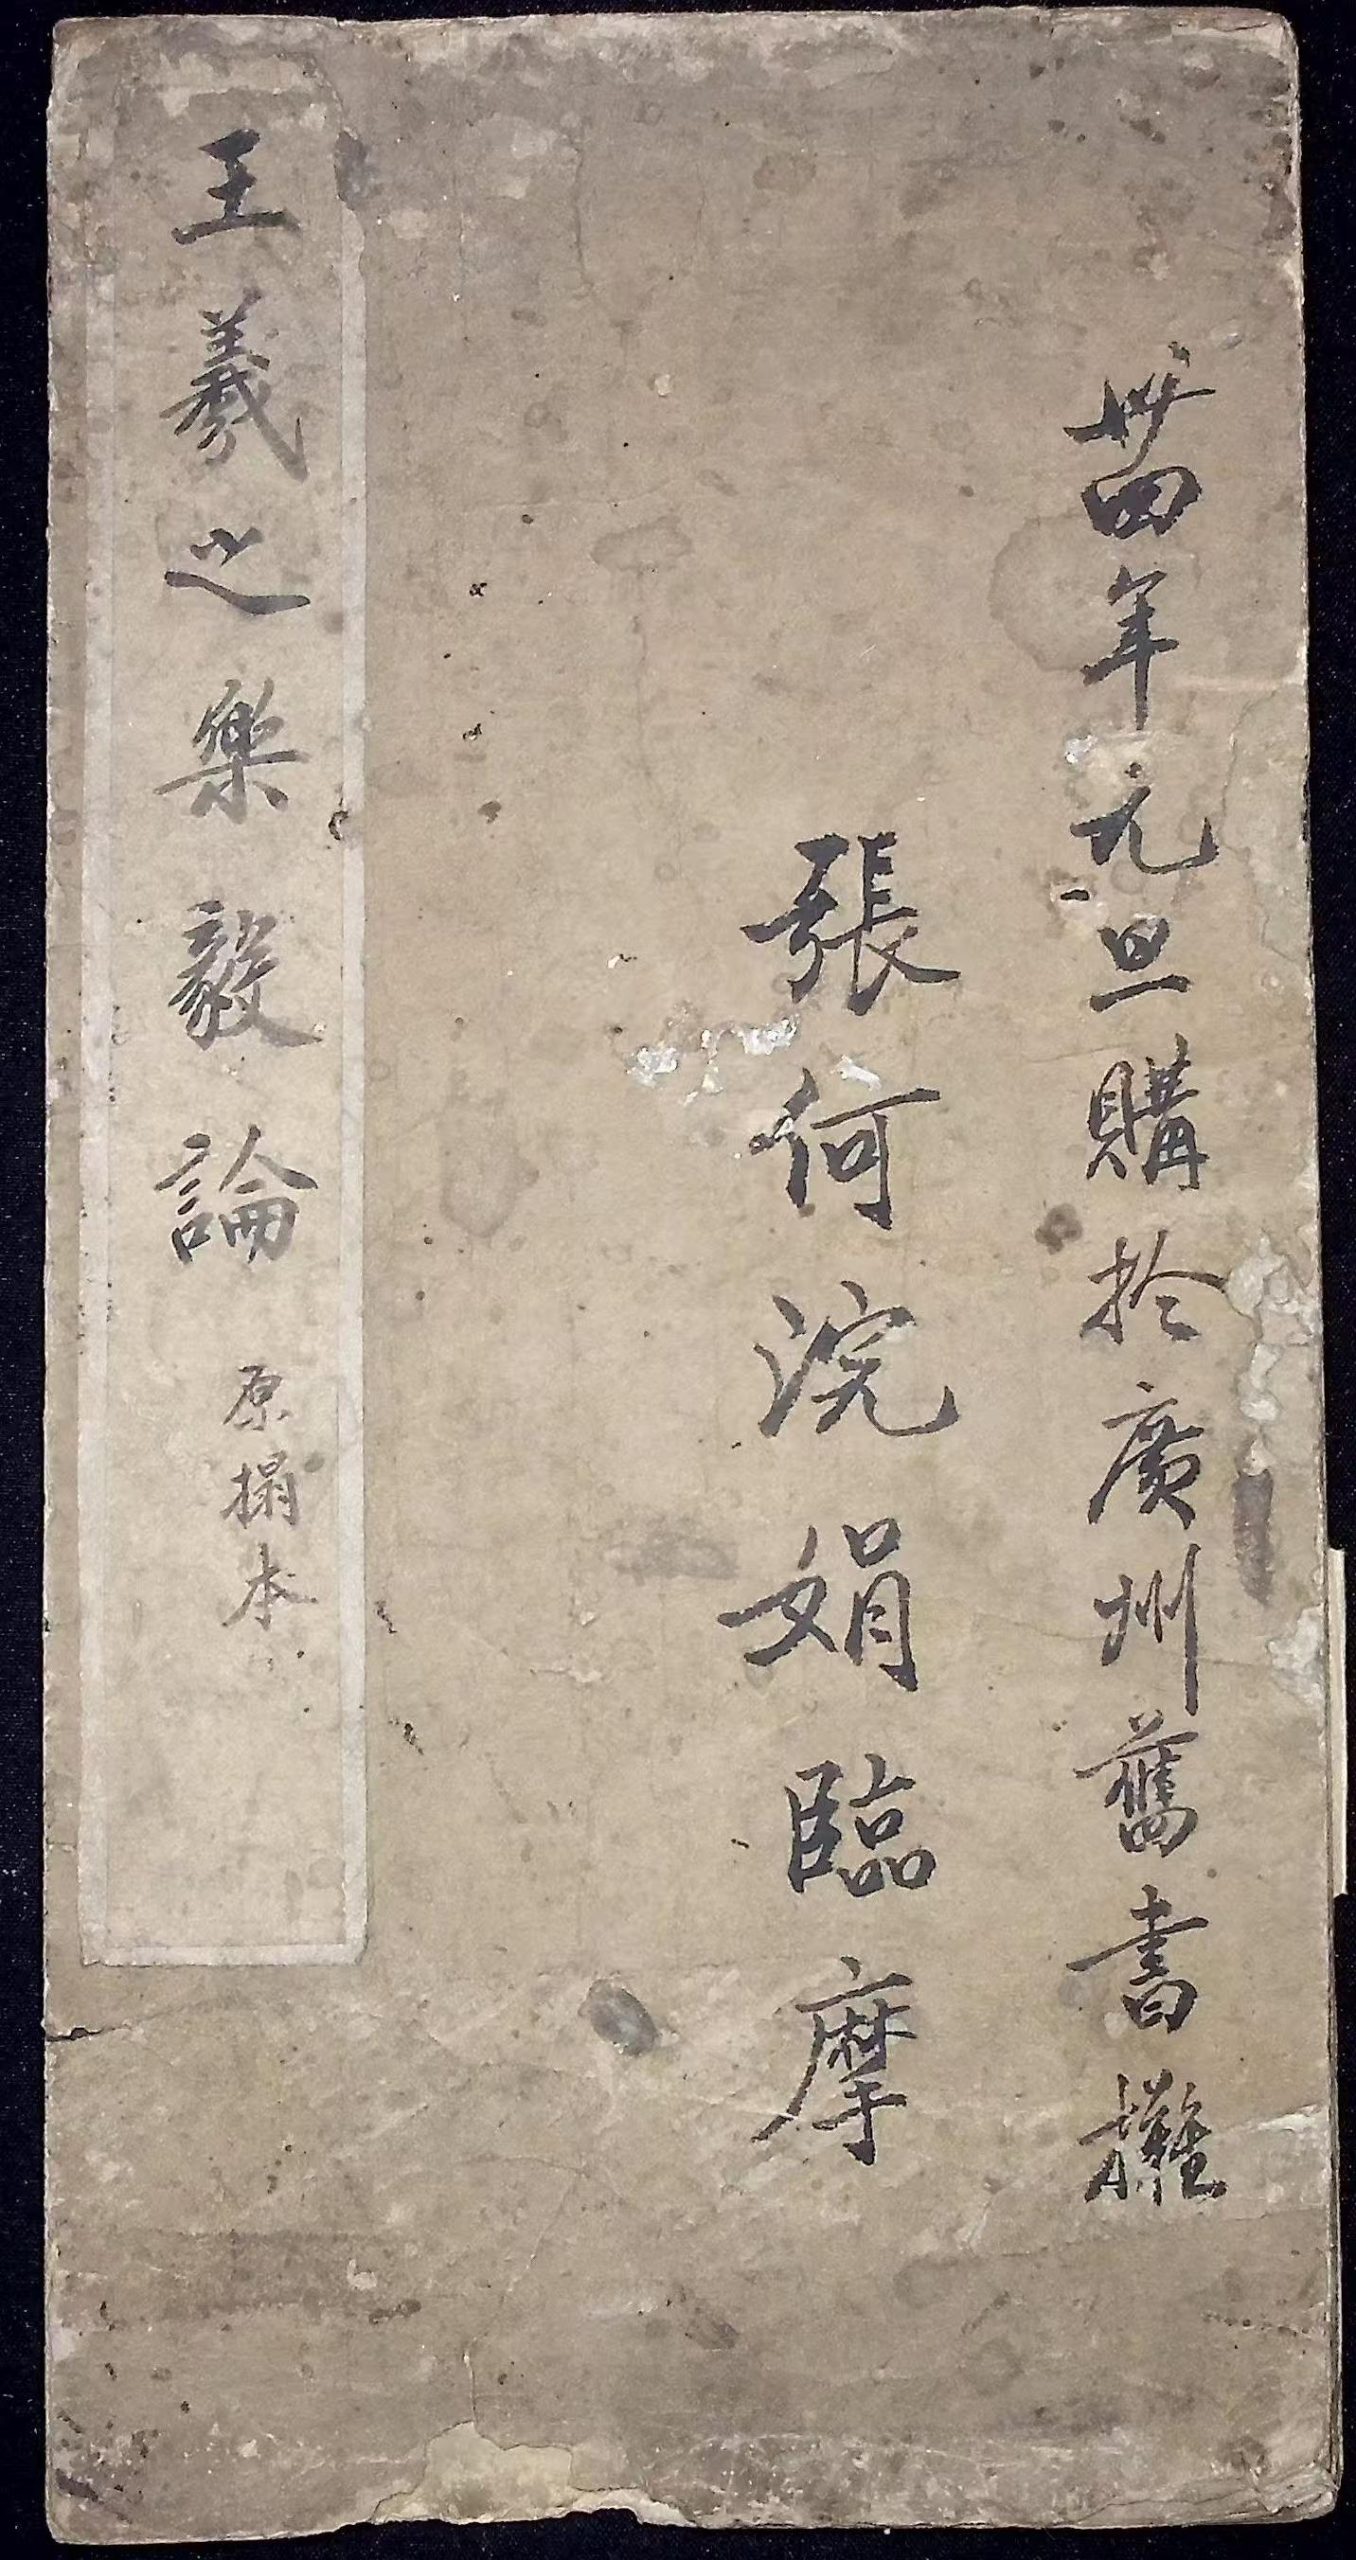 卅四年元旦購於廣州舊書攤
張何浣娟臨摩
王羲之樂毅論 原搨本